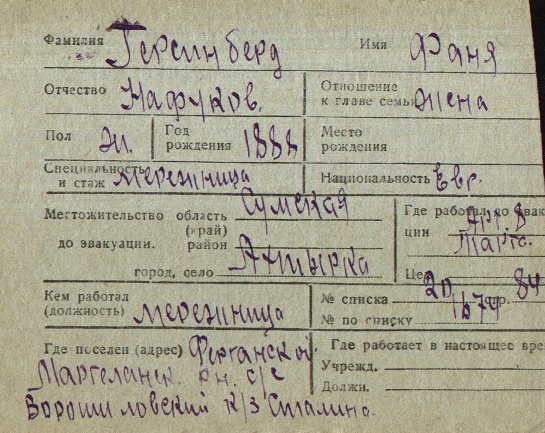 Фамилия Герсинберд Имя Фаня
Отчество Нафуков. Отношение к главе семьи жена
Пол ж. Год рождения 1888 Место рождения
Специальность и стаж мережница Национальность Евр.
Местожительство до эвакуации. область (край) Сумская
район
город, село Ахтырка
Где работал до эвакуации Арт. 8 Марта.
Це
Кем работал (должность) мережница
№ списка 20 стр. 84
№ по списку 1674
Где поселен (адрес) Ферганской.
Маргеланск. рн. с/с
Ворошиловский к/з Сталина.
Где работает в настоящее вре
Учрежд.
Должн.